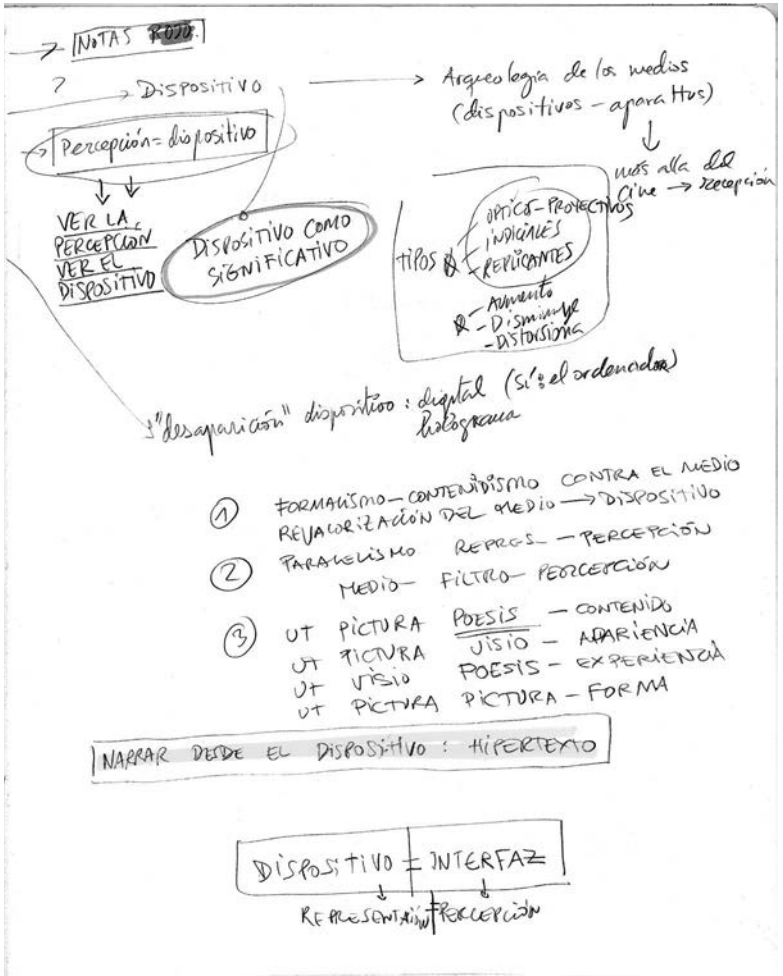 → NOTAS ROJO.
?
→ DISPOSITIVO → Arqueologia de los medios
(dispositivos – aparattus)
↓
más alla del
cine → recepción
→ Percepción = dispositivo
↓ ↓
VER LA
PERCEPCIÓN
VER EL
DISPOSITIVO
DISPOSITIVO COMO
SIGNIFICATIVO
TIPOS
– OPTICO-PROYECTIVOS
– INDICIALES
– REPLICANTES
– Aumento
– Disminuye
– Distorsiona
"desaparición" dispositivo : digital (sí : el ordenador)
holograma
① FORMALISMO – CONTENIDISMO CONTRA EL MEDIO
REVALORIZACIÓN DEL MEDIO → DISPOSITIVO
② PARALELISMO REPRES – PERCEPCIÓN
MEDIO – FILTRO – PERCEPCIÓN
③ UT PICTURA POESIS – CONTENIDO
UT PICTURA VISIO – APARIENCIA
UT VISIO POESIS – EXPERIENCIA
UT PICTURA PICTURA – FORMA
NARRAR DESDE EL DISPOSITIVO : HIPERTEXTO
DISPOSITIVO = INTERFAZ
↓ ↓
REPRESENTAIÓN = PERCEPCIÓN